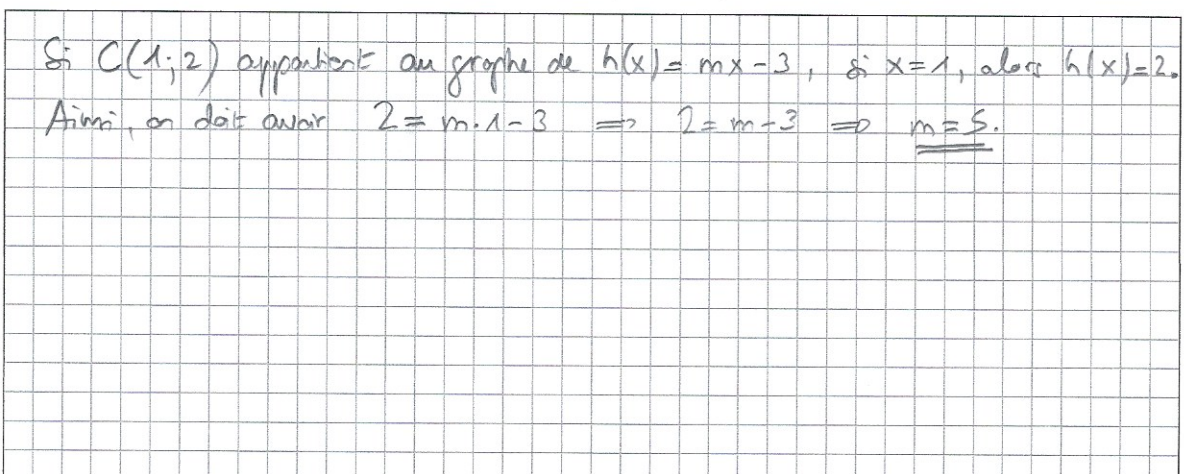 Si C(1;2) appartient au graphe de h(x) = mx - 3, si x = 1, alors h(x) = 2.
Ainsi, on doit avoir 2 = m·1 - 3 ⇒ 2 = m - 3 ⇒ m = 5.